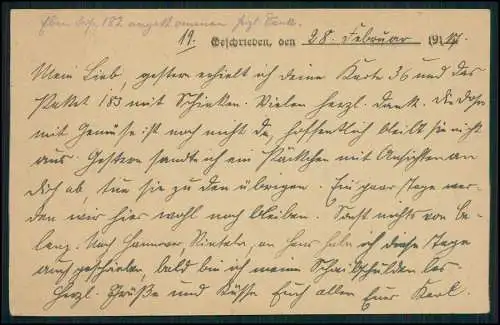 Eben Doss. 182 angekommen hzl. Dank.
19. Geschrieben, den 28. Februar 1917.
Mein Lieb, gestern erhielt ich deine Karte 36 und das
Paket 183 mit Schinken. Vielen herzl. Dank. Die Dose
mit Gemüse ist noch nicht da, hoffentlich bleibt sie nicht
aus. Gestern sandte ich ein Päckchen mit Ansichten an
dich ab, tue sie zu den übrigen. Ein paar Tage wer-
den wir hier wohl noch bleiben. Sonst nichts von Be-
lang. Nach Hannover, an Hans habe ich diese Tage
auch geschrieben, bald bin ich meine Schreibschulden los.
Herzl. Grüße und Küsse Euch allen Euer Karl.